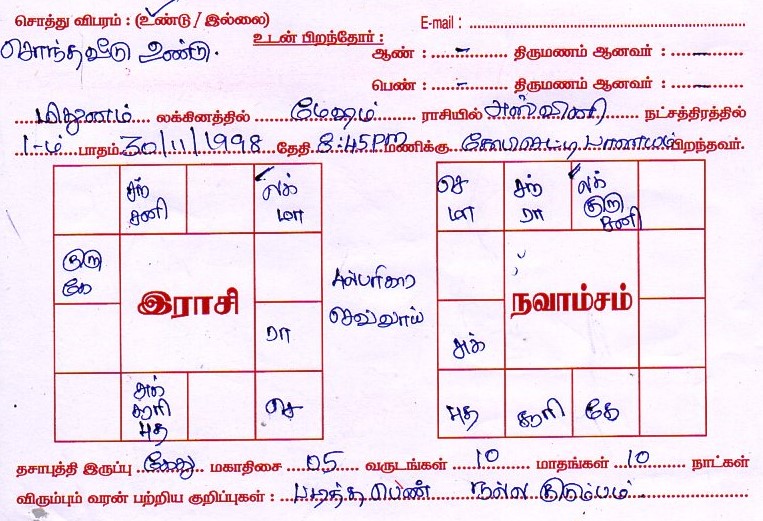 சொத்து விபரம் : (உண்டு / இல்லை) E-mail :
சொந்தவீடு உண்டு. உடன் பிறந்தோர் :
ஆண் : - திருமணம் ஆனவர் : -
பெண் : - திருமணம் ஆனவர் : -
மிதுனம் லக்கினத்தில் மேஷம் ராசியில் அஸ்வினி நட்சத்திரத்தில்
1-ம் பாதம் 30/11/1998 தேதி 8:45PM மணிக்கு பிறந்தவர்.
சந் லக் செ சந் லக்
சனி மா மா ரா குரு
சனி
குரு
கே
இராசி நவாம்சம்
செவ்வாய்
ரா சுக்
சுக்
சூரி
புத செ புத சூரி கே
தசாபுத்தி இருப்பு கேது மகாதிசை 05 வருடங்கள் 10 மாதங்கள் 10 நாட்கள்
விரும்பும் வரன் பற்றிய குறிப்புகள் : படித்த பெண் நல்ல குடும்பம்